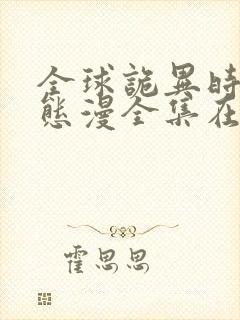 全球詭異時
態漫全集在
霍思思